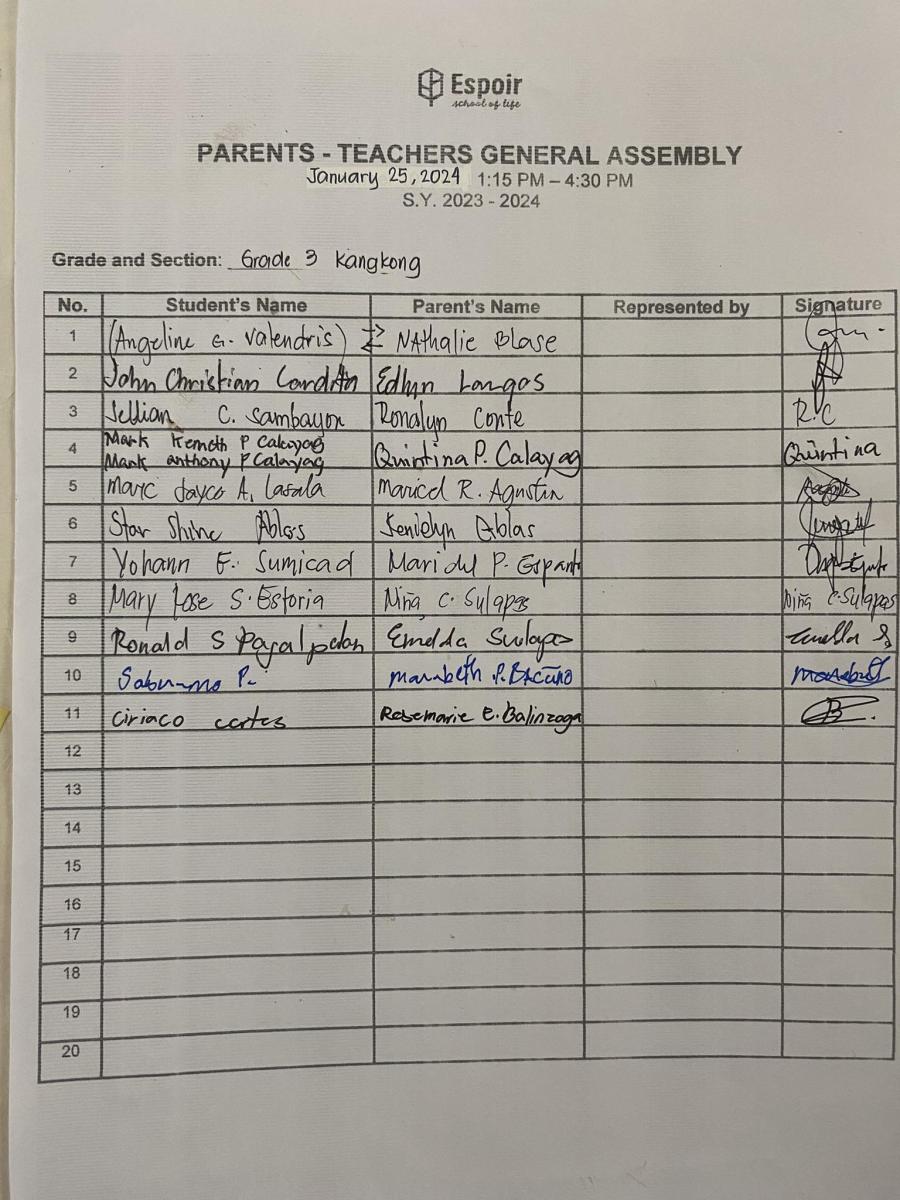 Espoir
school of life
PARENTS - TEACHERS GENERAL ASSEMBLY
January 25, 2024 1:15 PM – 4:30 PM
S.Y. 2023 - 2024
Grade and Section: Grade 3 Kangkong
No. Student's Name Parent's Name Represented by Signature
1 (Angeline G. Valendris) NAthalie Blase
2 John Christian Edlyn Langas
3 Jellian C. Sambayon Ronalyn Conte R.C
4 Mark Kenneth P Calayag
Mark anthony P Calayag Quintina P. Calayag Quintina
5 Marc Jayco A. Lasala Maricel R. Agustin
6 Star Shine Ablas Jenielyn Ablas
7 Yohann E. Sumicad Maridel P. Espante
8 Mary Jose S. Estoria Niña C. Sulapas Niña C. Sulapas
9 Ronald S Pagalpatan Emelda Sulapas
10 P. Marabeth P.
11 Ciriaco cortes Rosemarie E. Balinzaga
12
13
14
15
16
17
18
19
20